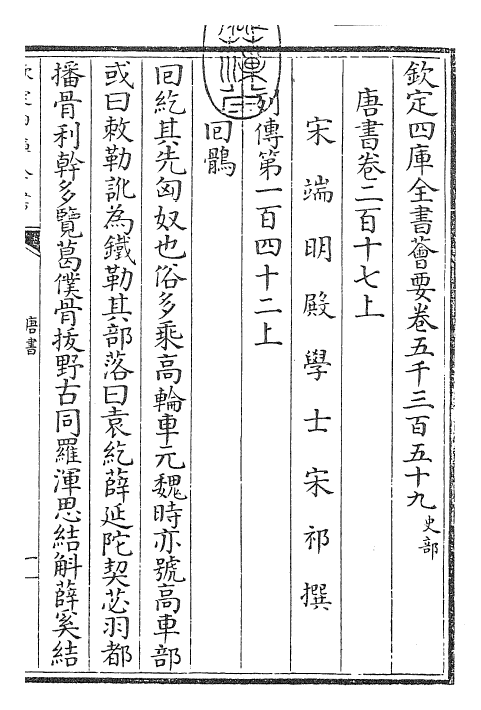 欽定四庫全書薈要卷五千三百五十九 史部
唐書卷二百十七上
宋端明殿學士宋祁撰
列傳第一百四十二上
回鶻
回紇其先匈奴也俗多乘高輪車元魏時亦號高車部
或曰敕勒訛為鐵勒其部落曰袁紇薛延陀契苾羽都
播骨利幹多覽葛僕骨拔野古同羅渾思結斛薛奚結
唐書
一